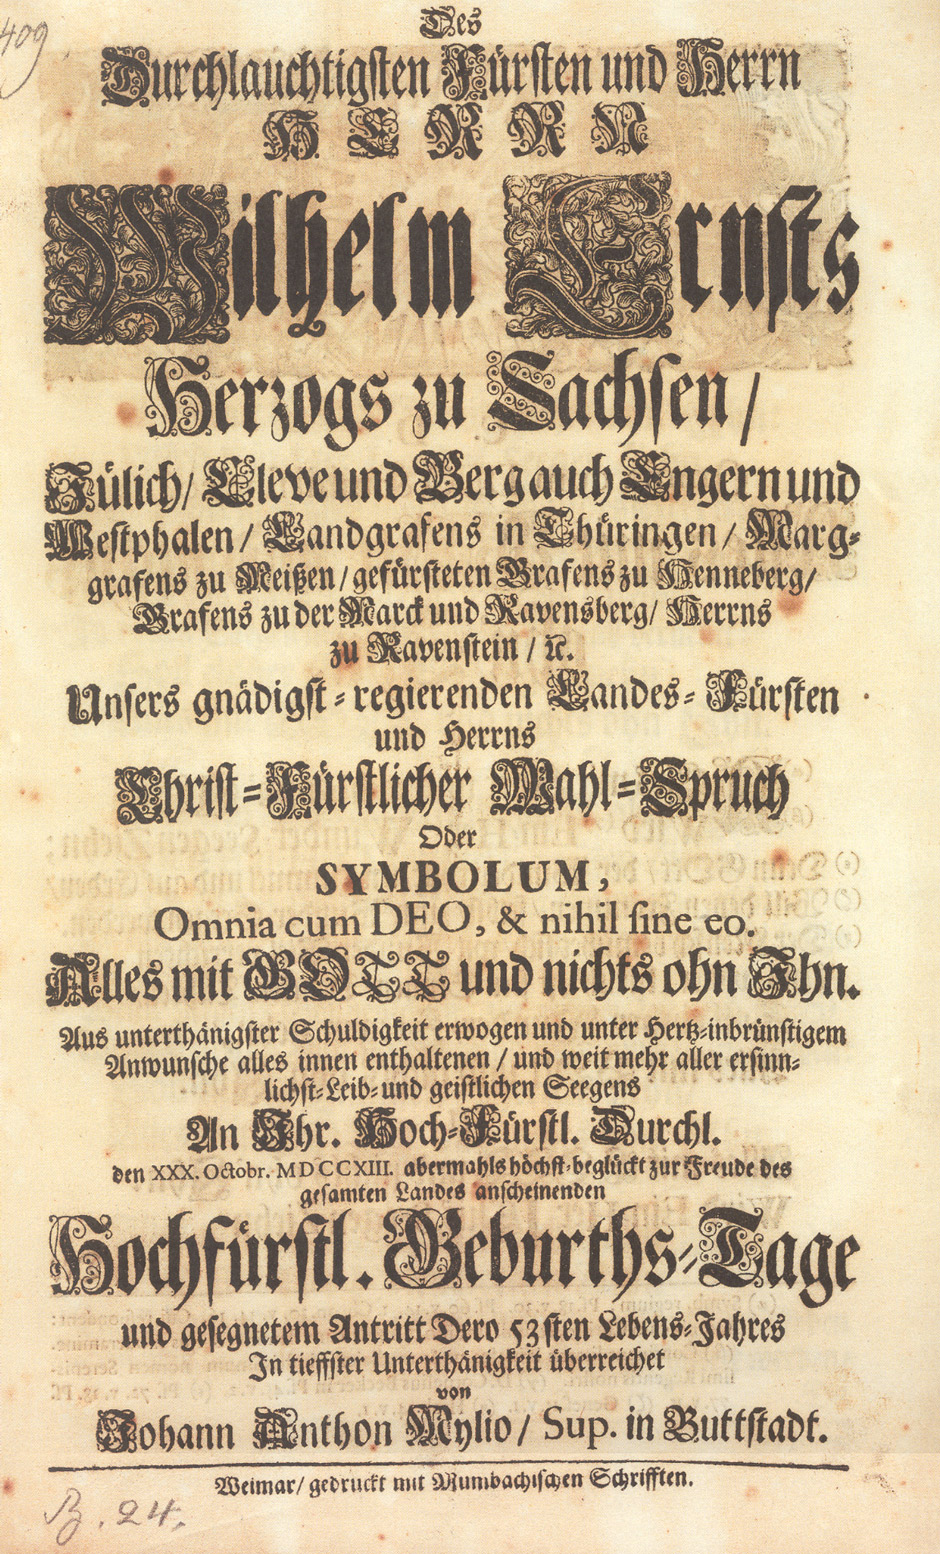 409
Des
Durchlauchtigsten Fürsten und Herrn
HERRN
Wilhelm Ernsts
Herzogs zu Sachsen /
Jülich / Cleve und Berg auch Engern und
Westphalen / Landgrafens in Thüringen / Marg-
grafens zu Meißen / gefürsteten Grafens zu Henneberg /
Grafens zu der Marck und Ravensberg / Herrns
zu Ravenstein / ꝛc.
Unsers gnädigst-regierenden Landes-Fürsten
und Herrns
Christ-Fürstlicher Wahl-Spruch
Oder
SYMBOLUM,
Omnia cum DEO, & nihil ſine eo.
Alles mit GOTT und nichts ohn Ihn.
Aus unterthänigster Schuldigkeit erwogen und unter Hertz-inbrünstigem
Anwunsche alles innen enthaltenen / und weit mehr aller ersinn-
lichst-Leib- und geistlichen Seegens
An Ihr. Hoch-Fürstl. Durchl.
den XXX. Octobr. MDCCXIII. abermahls höchst-beglückt zur Freude des
gesamten Landes anscheinenden
Hochfürstl. Geburths-Tage
und gesegnetem Antritt Dero 53sten Lebens-Jahres
In tieffster Unterthänigkeit überreichet
von
Johann Anthon Mylio / Sup. in Buttstadt.
Weimar / gedruckt mit Mumbachischen Schrifften.
B. 24.